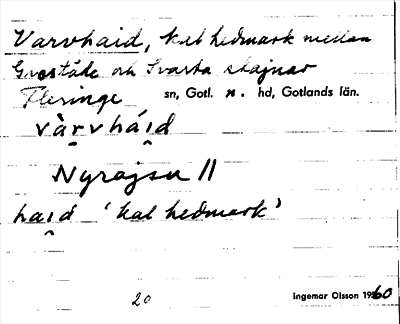 Varvhaid, kal hedmark mellan
och Svarta
Fleringe sn, Gotl. n. hd, Gotlands län.
vàrvháid
Nyrojsu II
haid 'kal hedmark'
20 Ingemar Olsson 1960